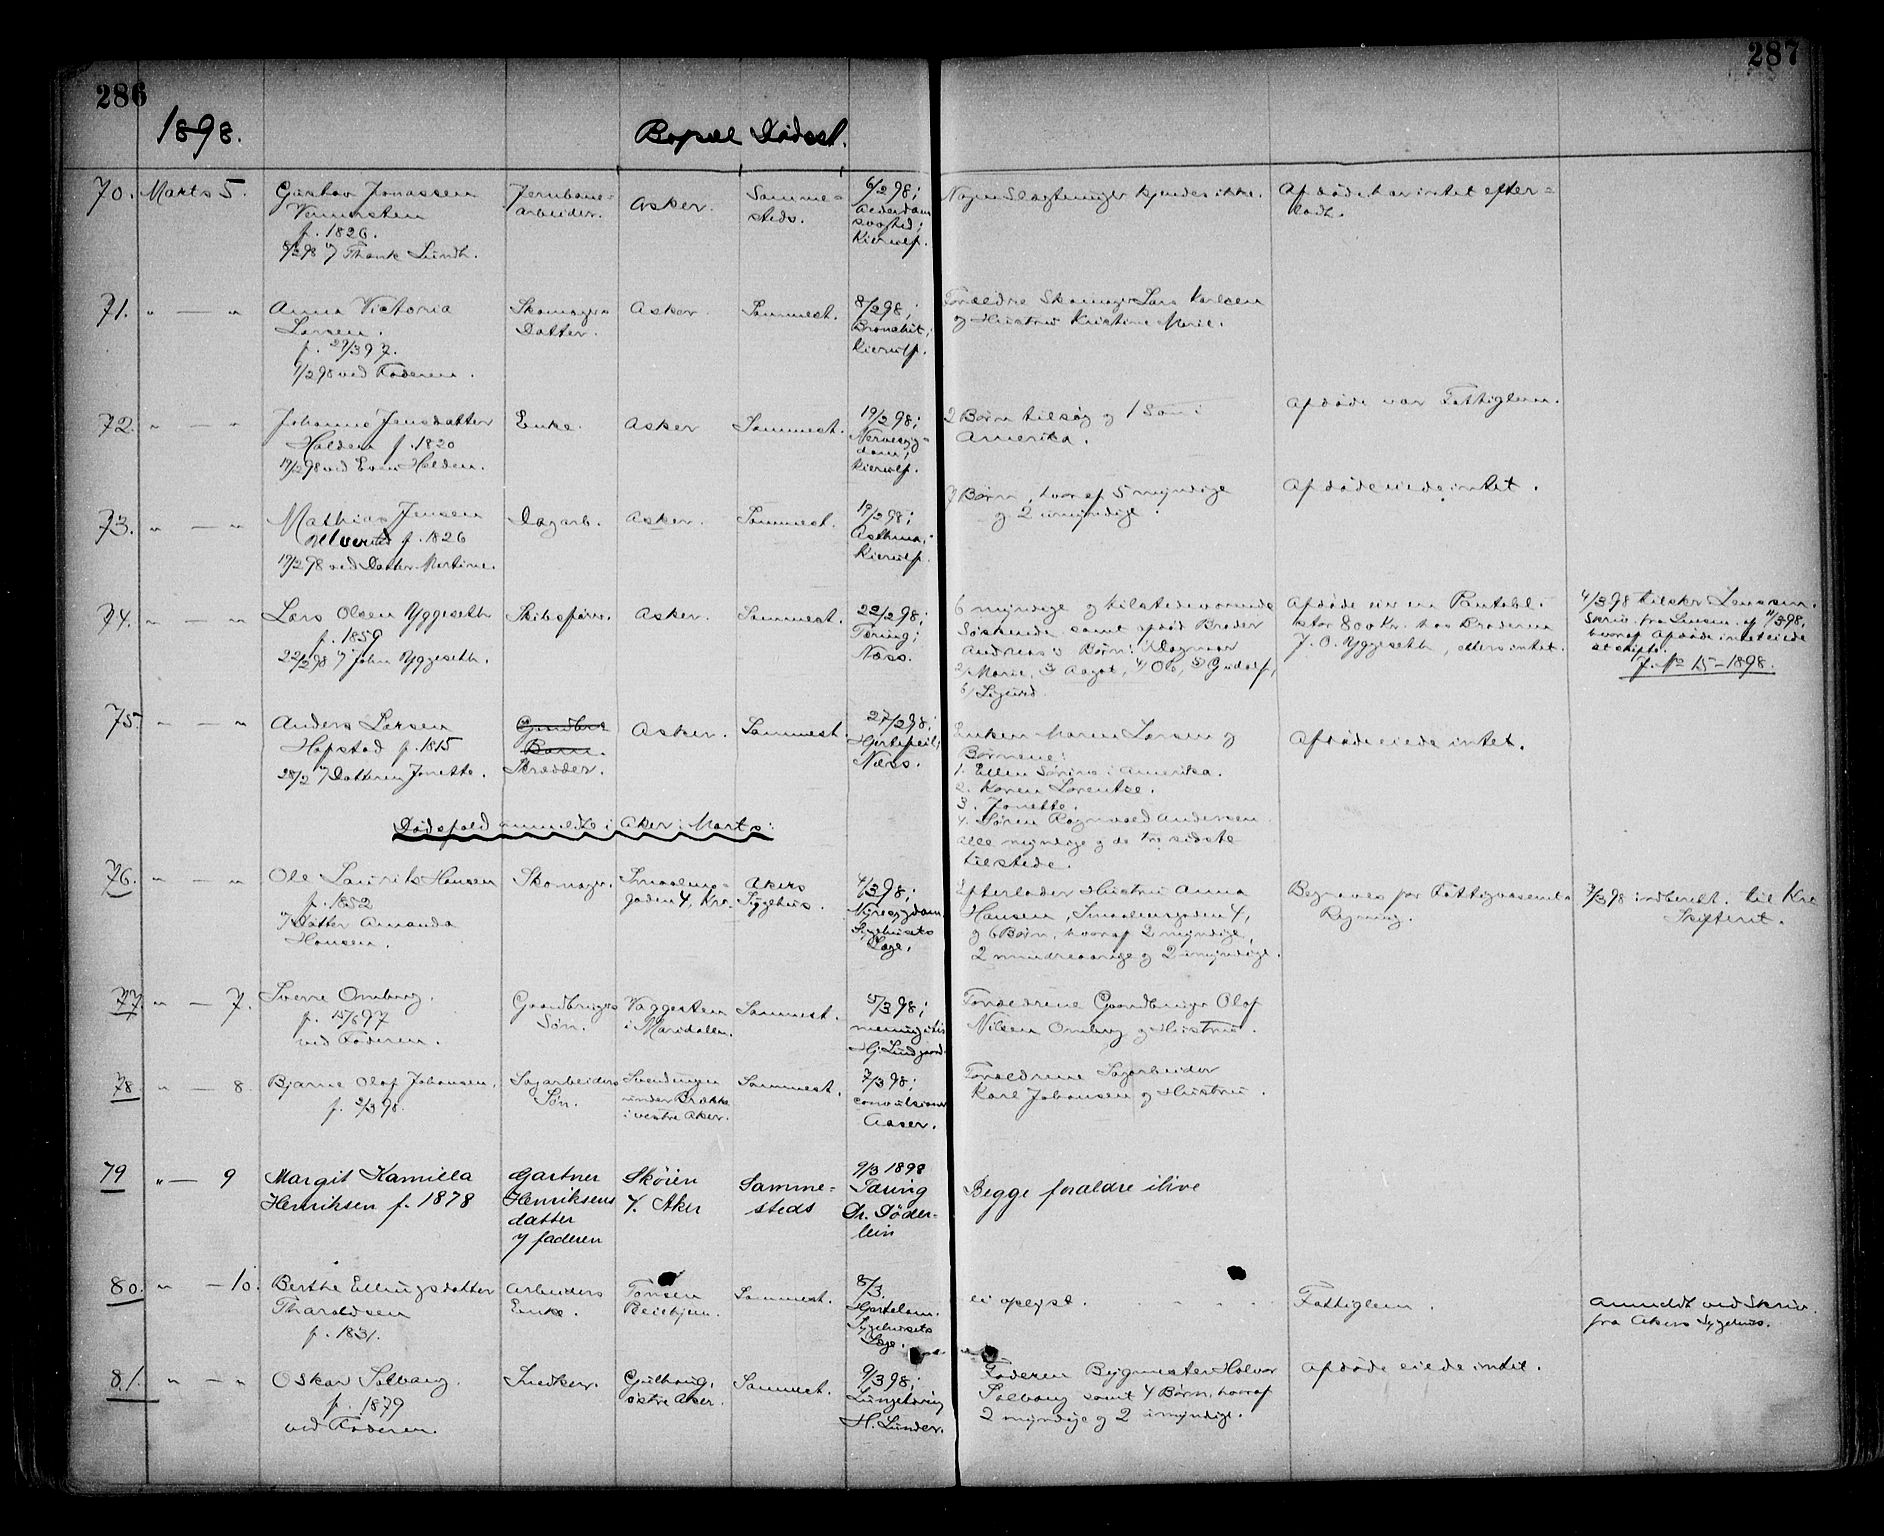 286
287
1898.
Bopæl Dødsst.
70. Marts 5.
Gustav Jonassen
f. 1826.
Jernbane-
arbeider.
Asker.
Samme-
steds.
6/2 98;
Alderdoms
svaghed;
Kierulf.
Nogen Slægtninger kjendes ikke.
Afdøde har intet efter-
ladt.
71. " — "
Anna Victoria
Larsen.
f. 29/3 97.
9/2 98 ved Faderen.
Skomagers
Datter.
Asker.
Sammest.
8/2 98;
Bronchit;
Kierulf.
Forældre Skomager Lars Karlsen
og Hustru Kristine Marie.
72. " — "
Johanne Jensdatter
Halden f. 1820
19/2 98 ved Even Halden.
Enke.
Asker
Sammest.
19/2 98;
Nervesyg-
dom;
Kierulf.
2 Børn tilsog og 1 Søn i
Amerika.
Afdøde var Fattiglem.
73. " — "
Mathias Jensen
f. 1826
19/2 98 ved Datter Martine.
Dagarb.
Asker.
Sammest.
19/2 98;
Asthma;
Kierulf.
7 Børn, hvoraf 5 myndige
og 2 umyndige.
Afdøde eiede intet.
74. " — "
Lars Olsen Yggeseth
f. 1859
22/2 98 v/ John Yggeseth.
Skibsfører.
Asker.
Sammest.
22/2 98;
Tæring;
Næss.
6 myndige og tilstedeværende
Søskende samt afdød Broder
Andreas's Børn: 1) Dagmar
2) Marie, 3) Aagot, 4) Ole, 5) Gudolf,
6) Sigurd.
Afdøde eier en Pantobl.
stor 800 Kr. hos Broderen
J. O. Yggeseth, ellers intet.
4/3 98 tilskr. Lensm.
Skriv. fra Lensm. af 11/3 98,
hvoraf Afdøde intet eiede
at skifte.
J. No 15-1898.
75. " — "
Anders Larsen
Hofstad f. 1815
28/2 v/ Datteren Jonette.
Skrædder.
Asker.
Sammest.
27/2 98;
Hjertefeil;
Næss.
Enken Maren Larsen og
Børnene:
1. Ellen Sørine i Amerika.
2. Karen Lorentse.
3. Jonette.
4. Søren Ragnvald Andersen
alle myndige og de tre sidste
tilstede.
Afdøde eiede intet.
Dødsfald anmeldte i Aker i Marts:
76. " — "
Ole Laurits Hansen
f. 1852
v/ Datter Amanda
Hansen.
Skomager.
Smaalens-
gaden 4, Kra.
Akers
Sygehus.
4/3 98;
Nyresygdom.
Sygehusets
Læge.
Efterlader Hustru Anna
Hansen, Smaalensgaden 4,
og 6 Børn, hvoraf 2 myndige,
2 mindreaarige og 2 umyndige.
Begraves for Fattigvæsenets
Regning.
7/3 98 indberett. til Kra
Skifteret.
77. " — 7.
Sverre Omberg.
f. 15/6 97
ved Faderen.
Gaardbrugers
Søn.
Vaggesten
i Maridalen.
Sammest.
5/3 98;
meningitis
Hj. Lundgaard.
Forældrene Gaardbruger Olaf
Nilsen Omberg og Hustru.
78. " — 8.
Bjarne Olaf Johansen,
f. 2/3 98.
Sagarbeiders
Søn.
Svendengen
under Brække
i vestre Aker.
Sammest.
7/3 98;
convulsioner
Aaser.
Forældrene Sagarbeider
Karl Johansen og Hustru.
79 " — 9
Margit Kamilla
Henriksen f. 1878
Gartner
Henriksens
datter
v/ faderen
Skøien
V. Aker
Samme-
steds
9/3 1898
Tæring
Dr. Døder-
lein
Begge forældre ilive
80. " — 10.
Berthe Ellingsdatter
Tharaldsen
f. 1831.
Arbeiders
Enke.
Tonsen
Sammest.
8/3.
Hjertelam.
Sygehusets
Læge.
ei oplyst.
Fattiglem.
Anmeldt ved Skriv.
fra Akers Sygehus.
81. " — "
Oskar Solberg.
f. 1879
ved Faderen.
Snedker.
Gulhaug,
østre Aker.
Sammest.
9/3 98;
Lungetæring
H. Lunder.
Faderen Bygmester Halvor
Solberg samt 4 Børn, hvoraf
2 myndige og 2 umyndige.
Afdøde eiede intet.